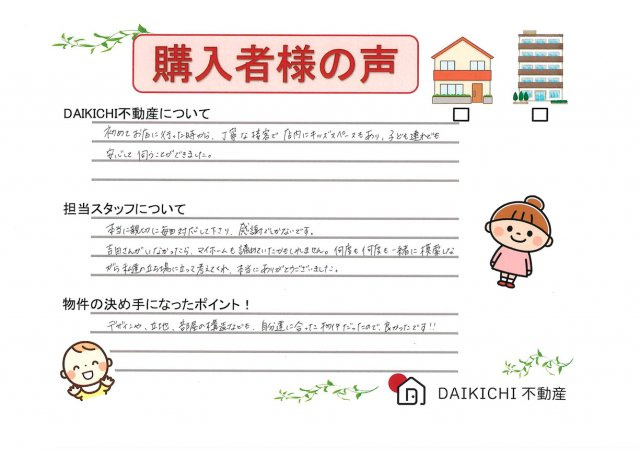 購入者様の声
DAIKICHI不動産について
初めてお店に伺った時から、丁寧な接客で 店内にキッズスペースもあり、子ども連れでも
安心して伺うことができました。
担当スタッフについて
本当に親切に毎回対応して下さり、感謝でしかないです。
吉田さんがいなかったら、マイホームも諦めていたかもしれません。何度も何度も一緒に模索しな
がら私達の立ち場に立って考えてくれ、本当にありがとうございました。
物件の決め手になったポイント！
デザインや、立地、部屋の構造なども、自分達に合った物件だったので、良かったです!!
DAIKICHI 不動産